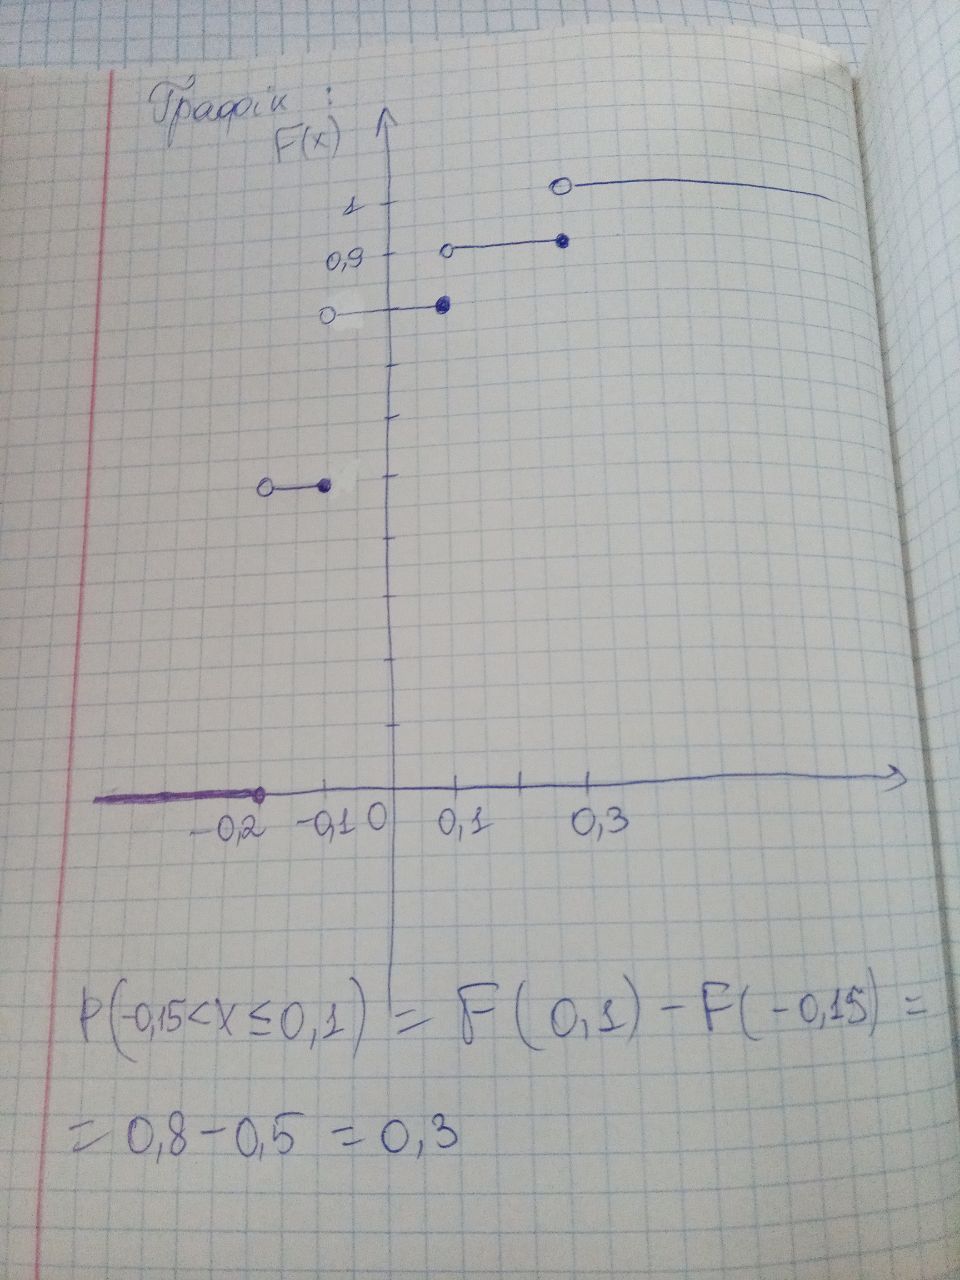 Графік :
F(x)
1
0,9
-0,2 -0,1 0 0,1 0,3
P(-0,15<X≤0,1) = F(0,1) - F(-0,15) =
= 0,8 - 0,5 = 0,3